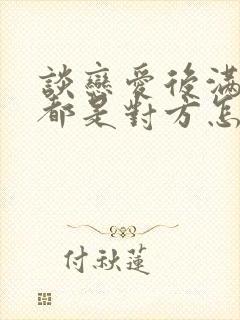 談戀愛後滿
都是對方怎
付秋蓮